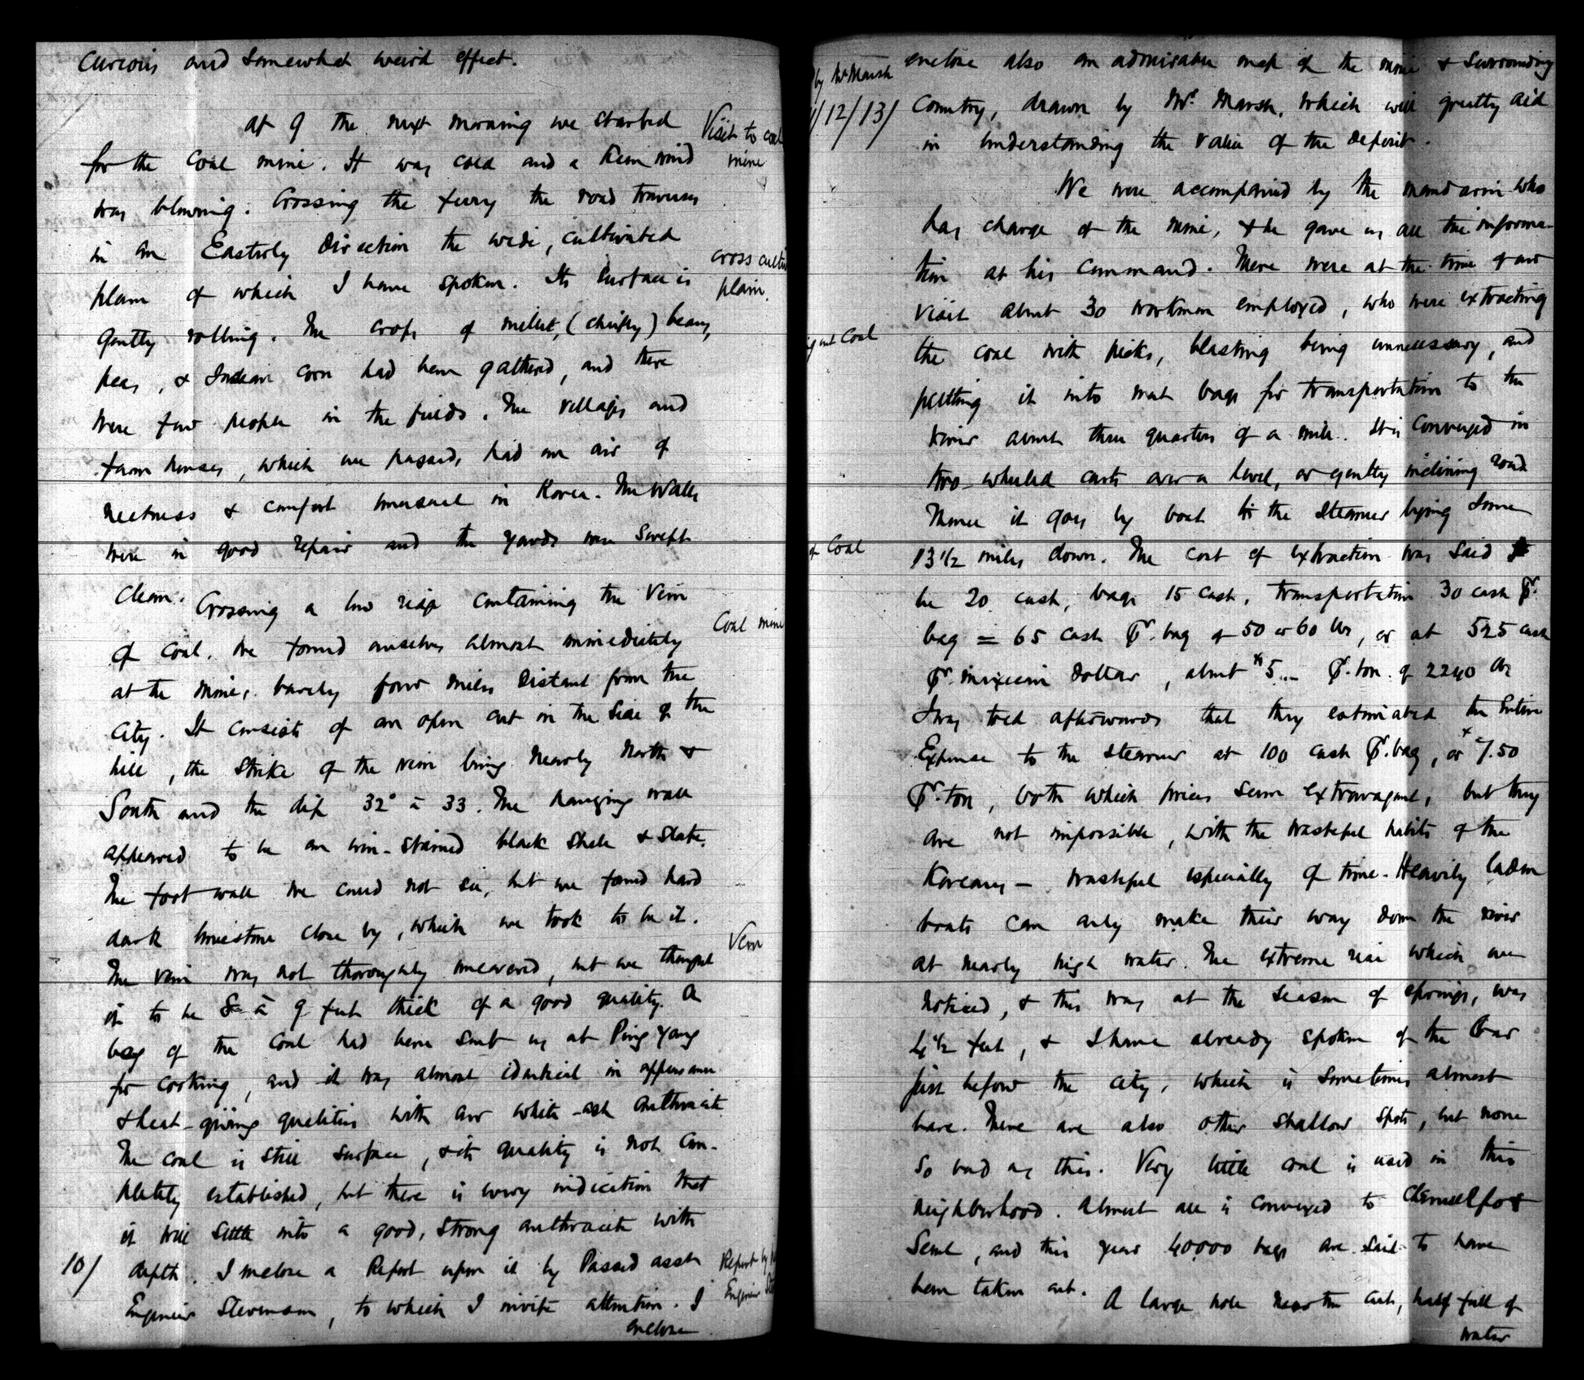 curious and somewhat weird effect.
At 9 the next morning we started
for the coal mine. It was cold and a keen wind
was blowing. Crossing the ferry the road traverses
in an Easterly direction the wide, cultivated
plain of which I have spoken. Its surface is
gently rolling. The crops of millet, (chiefly) beans,
peas, & Indian corn had been gathered, and there
were few people in the fields. The villages and
farm houses, which we passed, had an air of
neatness & comfort unusual in Korea. The walls
were in good repair and the yards were swept
clean. Crossing a low ridge containing the vein
of coal, we found ourselves almost immediately
at the mine, barely four miles distant from the
city. It consists of an open cut in the side of the
hill, the strike of the vein being nearly North &
South and the dip 32° à 33. The hanging wall
appeared to be an iron-stained black shale & slate.
The foot wall we could not see, but we found hard
dark limestone close by, which we took to be it.
The vein was not thoroughly uncovered, but we thought
it to be 8 à 9 feet thick of a good quality. A
bag of the coal had been sent us at Ping yang
for cooking, and it was almost identical in appearance
& heat-giving qualities with our white-ash anthracite
The coal is still surface, & its quality is not com-
pletely established, but there is every indication that
it will settle into a good, strong anthracite with
10/ depth. I enclose a Report upon it by Passed asst
Engineer Stevenson, to which I invite attention. I
enclose
Visit to coal
mine
cross
plain.
Coal mine
Vein
Report by
Engineer
by Mr Marsh
/12/13/
out Coal
of Coal
enclose also an admirable map of the mine & surrounding
Country, drawn by Mr. Marsh, which will greatly aid
in understanding the value of the deposit.
We were accompanied by the mandarin who
has charge of the mine, & he gave us all the informa-
tion at his command. There were at the time of our
visit about 30 workmen employed, who were extracting
the coal with picks, blasting being unnecessary, and
putting it into mat bags for transportation to the
river about three quarters of a mile. It is conveyed in
two-wheeled carts over a level, or gently inclining road
Thence it goes by boat to the steamer lying some
13 1/2 miles down. The cost of extraction was said to
be 20 cash, bags 15 cash, transportation 30 cash pr.
bag = 65 cash pr. bag of 50 or 60 lbs, or at 525 cash
pr. mexican dollar, about $5.. pr. ton. of 2240 lbs
I was told afterwards that they estimated the entire
Expense to the steamer at 100 cash pr. bag, or $7.50
pr. ton, both which prices seem extravagant, but they
are not impossible, with the wasteful habits of the
Koreans – wasteful especially of time. Heavily laden
boats can only make their way down the river
at nearly high water. The extreme rise which we
noticed, & this was at the season of springs, was
4 1/2 feet, & I have already spoken of the bar
just before the city, which is sometimes almost
bare. There are also other shallow spots, but none
so bad as this. Very little coal is used in this
neighborhood. Almost all is conveyed to Chemulpo &
Seoul, and this year 40000 bags are said to have
been taken out. A large hole near the cut, half full of
water